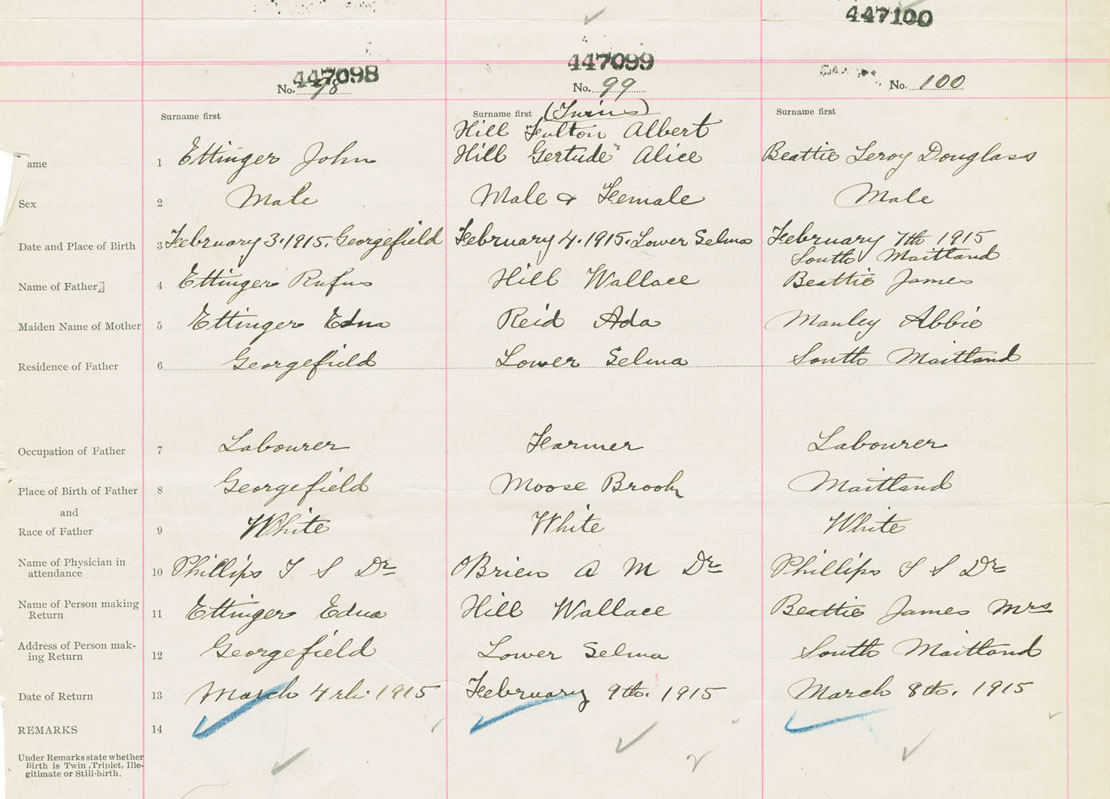 447100
447098
447099
No. 98
No. 99
No. 100
Surname first
Surname first (Twins)
Surname first
Hill Fulton Albert
ame 1 Ettinger John Hill Gertude Alice Beattie Leroy Douglass
Sex 2 Male Male & Female Male
Date and Place of Birth 3 February 3. 1915. Georgefield February 4. 1915. Lower Selma February 7th 1915
South Maitland
Name of Father 4 Ettinger Rufus Hill Wallace Beattie James
Maiden Name of Mother 5 Ettinger Edna Reid Ada Manley Abbie
Residence of Father 6 Georgefield Lower Selma South Maitland
Occupation of Father 7 Labourer Farmer Labourer
Place of Birth of Father 8 Georgefield Moose Brook Maitland
and
Race of Father 9 White White White
Name of Physician in
attendance 10 Phillips T S Dr OBrien A M Dr Phillips T S Dr
Name of Person making
Return 11 Ettinger Edna Hill Wallace Beattie James Mrs
Address of Person mak-
ing Return 12 Georgefield Lower Selma South Maitland
Date of Return 13 March 4th. 1915 February 9th. 1915 March 8th. 1915
REMARKS 14
Under Remarks state whether
Birth is Twin, Triplet, Ille-
gitimate or Still-birth.